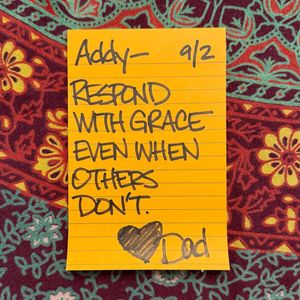 Addy— 9/2
RESPOND
WITH GRACE
EVEN WHEN
OTHERS
DON'T.
Dad